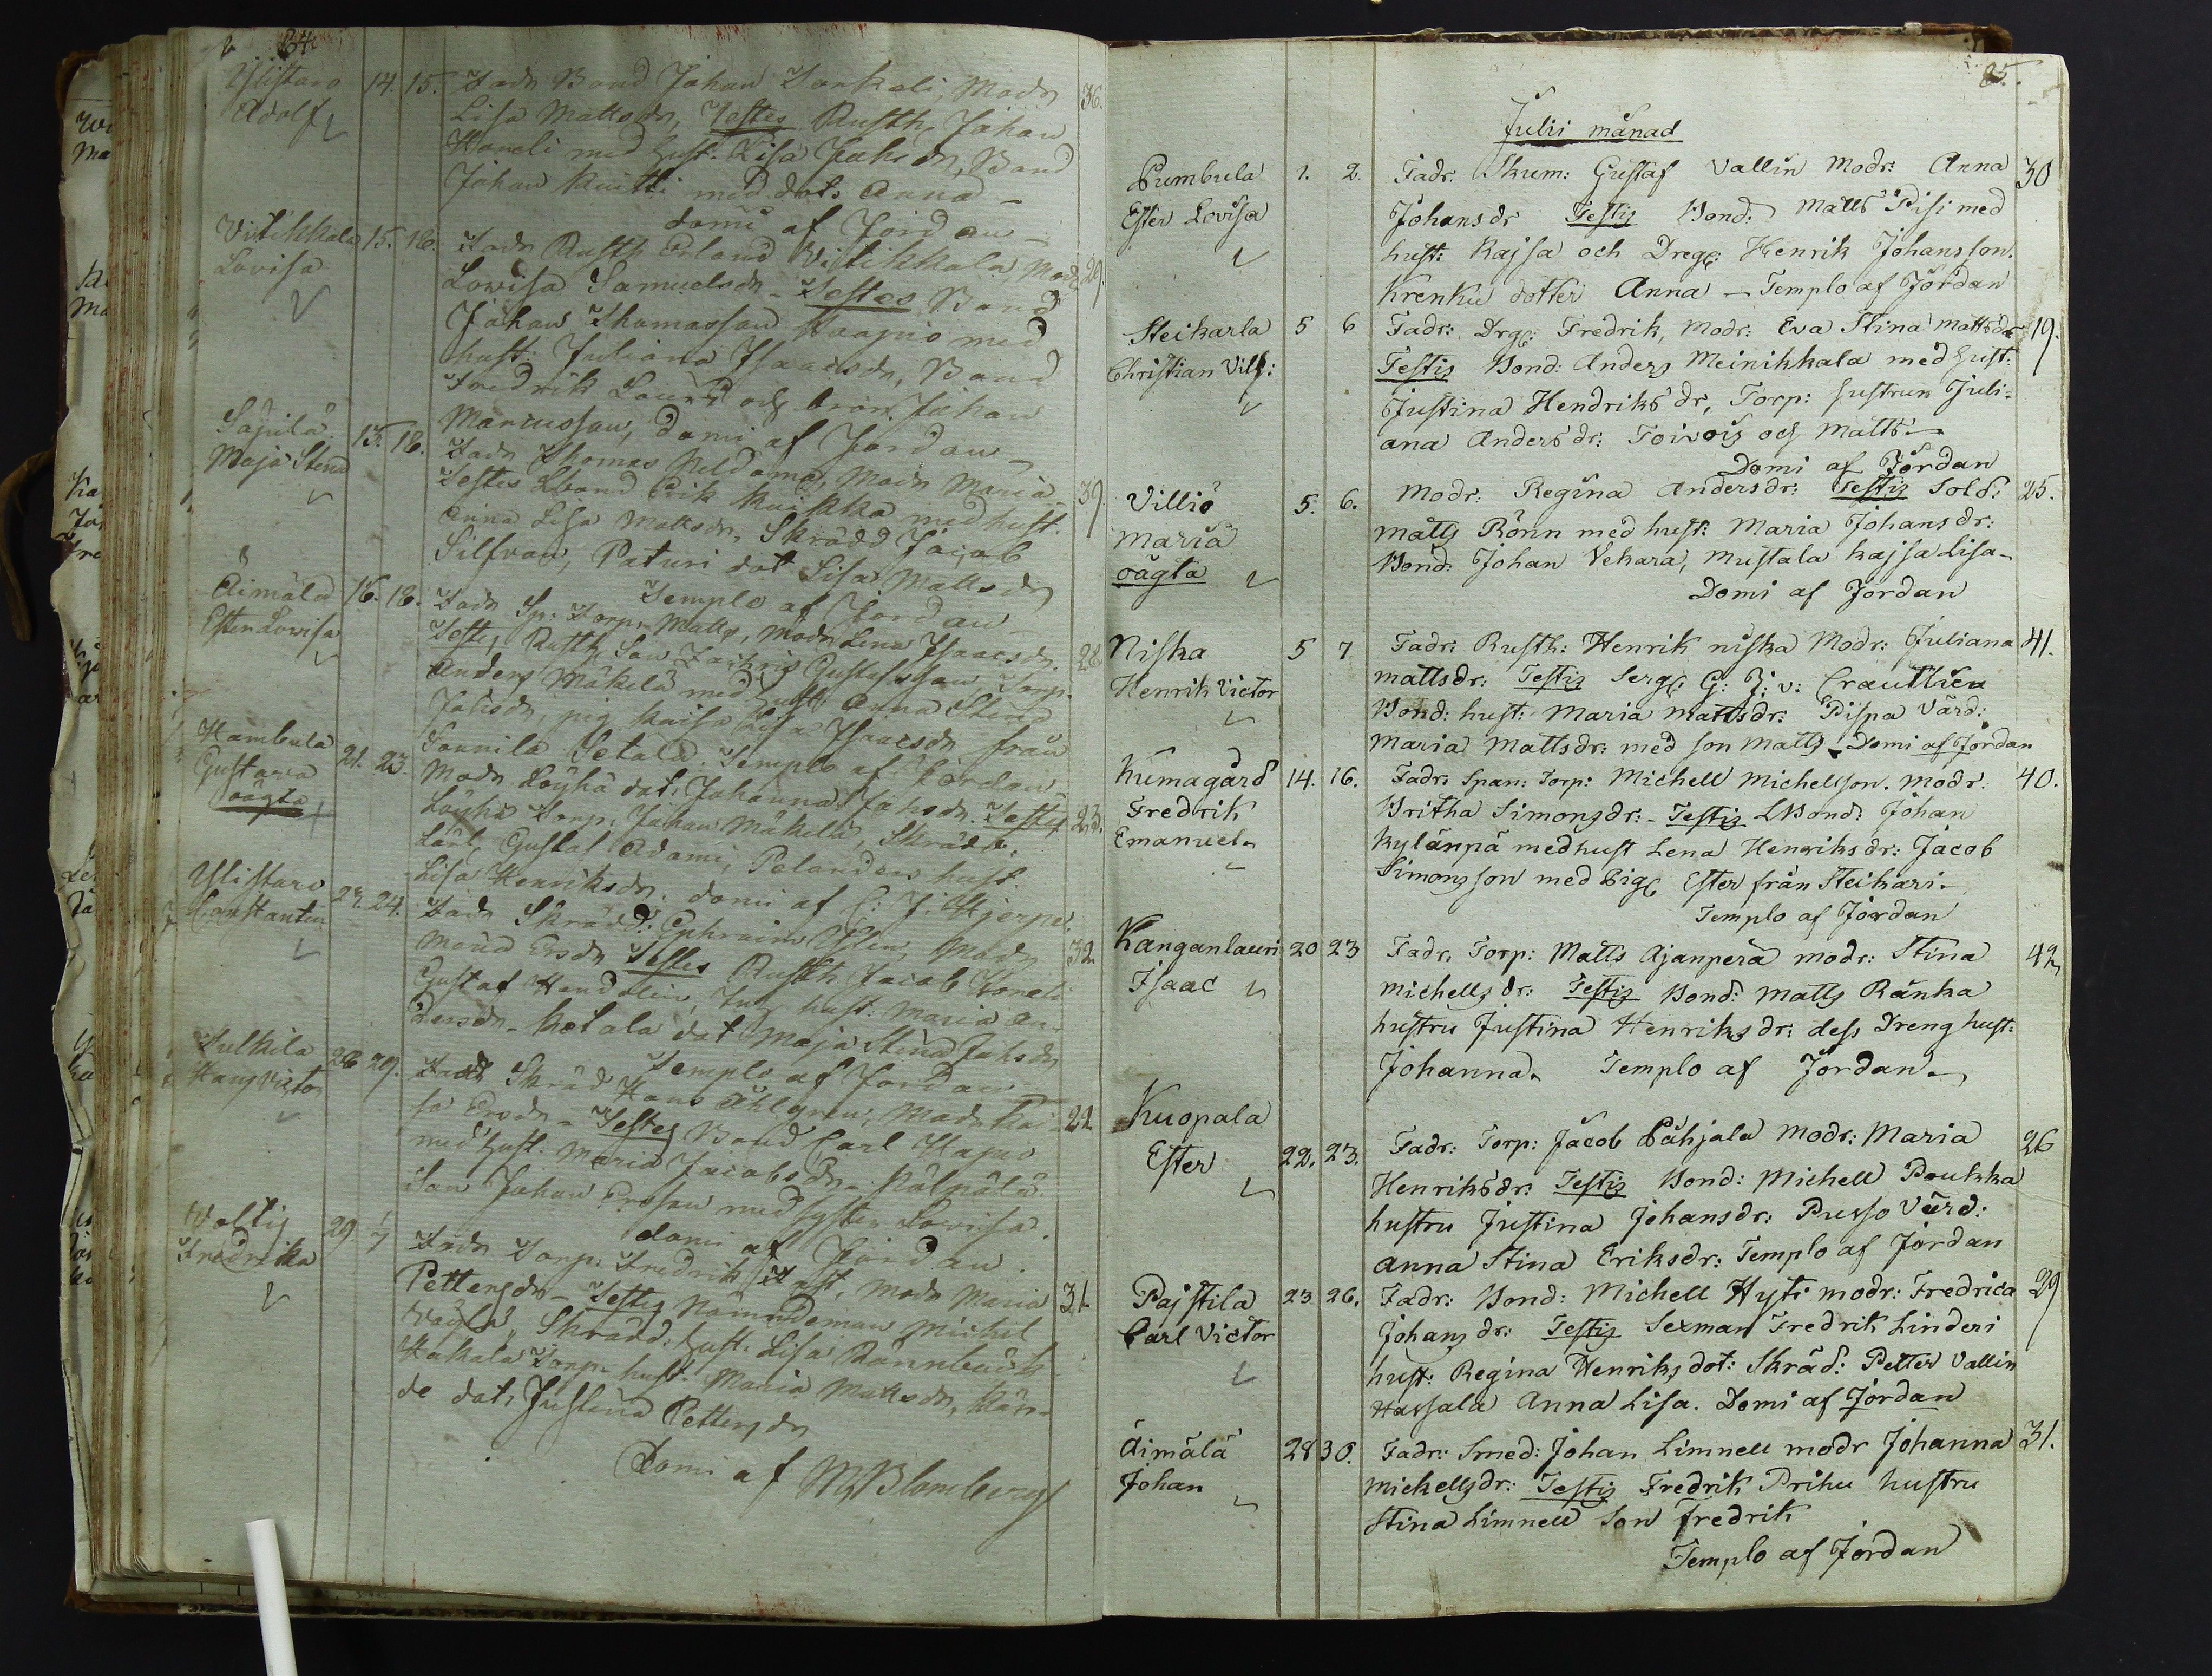 84.
Ylistaro 14. 15. Fadr Bond Johan Jankeli, Modr 36.
Adolf Lisa Mattsdr, Testes Rusth. Johan
Haneli med hust. Lisa Johsdr, Bond
Johan Knitti med dotr Anna
domi af Jordan
Vitikkala 15. 18. Fadr Rusth Erland Vitikkala, Modr 29.
Lovisa Lowisa Samuelsdr - Testes Bond
Johan Thomasson Haapio med
hust. Juliana Isaacsdr, Bond
Fredrik Lauri och bror Johan
Mariusson, domi af Jordan
Säjulä 15. 18. Fadr Thomas Peldoma, Modr Maria 39.
Maja Stina Testes Lbond Erik Kuikka med hust.
Anna Lisa Mattsdr, Skrädd Jacob
Silfvan, Paturi dot Lisa Mattsdr
Templo af Jordan
Äimälä 16. 18. Fadr Sp. Torp. Matts, Modr Lena Isaacsdr. 28.
Ester Lovisa Testes Rusth. Son Zachris Gustafsson, Torp.
Anders Mäkelä med hust. Anna Stina
Johsdr, pig Kaisa Lisa Isaacsdr från
Sonnila Setälä. Templo af Jordan
Hambula 21. 23. Modr Löyhä dotr Johanna Johsdr. Testes 23.
Gustava Löyhä Torp. Johan Mäkelä, Skrädd.
oägta Lärl. Gustaf Adami, Polanders hust.
Lisa Henriksdr. domi af C: J: Hjerpe
Ylistaro 23. 24. Fadr Skrädd: Ephraim Öhlin, Modr 32
Constantin Maria Ersdr Testes Rusth Jacob Honeli
Gustaf Hendelin, hust. Maria An-
dersdr - Ketala dot Maja Stina Johsdr
Templo af Jordan
Sulkila 28 29. Fadr Skräd Hans Ahlgren, Modr Kai- 22
Hans Victor sa Ersdr - Testes Bond Carl Hapio
med hust. Maria Jacobsdr - Pälpälä
Son Johan Ersson med syster Lovisa.
domi af Jordan.
Voltis 29. 1/7 Fadr Torp. Fredrik Hast, Modr Maria 31
Fredrika Pettersdr - Testes Nämndeman Michel
Skrädd. hust. Lisa Rännbäck
Hakala Torp. hust. Maria Mattsdr, Kän-
de dotr Justina Pettersdr
Domi af M Blomberg
85.
Julii månad
Pumbula 1. 2. Fadr: Skum: Gustaf Vallin Modr: Anna 30
Ester Lovisa Johansdr Testis Bond: Matts Pisi med
hust: Kajsa och Dreg: Henrik Johansson.
Krenku dotter Anna — Templo af Jordan
Steikarla 5 6 Fadr: Drg: Fredrik, Modr: Eva Stina Mattsdr 19.
Christian Vilh: Testis Bond: Anders Meinikkala med hust:
Justina Hendriksdr, Torp: hustrun Juli-
ana Andersdr: Toivois och Matts —
Domi af Jordan
Villiö 5. 6. Modr: Regina Andersdr: Testis Sold: 25.
Maria Matts Rönn med hust: Maria Johansdr:
oägta Bond: Johan Vekara, Mustala Kajsa Lisa -
Domi af Jordan
Niska 5 7 Fadr: Rusth: Henrik Niska Modr: Juliana 41.
Henrik Victor Mattsdr: Testis Serg: G: J: v: Crautlien
Bond: hust: Maria Mattsdr: Pispa Värd:
Maria Mattsdr: med son Matts - Domi af Jordan
Kumagård 14. 16. Fadr: Span: Torp: Michell Michellson. Modr. 40.
Fredrik Britha Simonsdr: - Testis LBond: Johan
Emanuel Kylänpä med hust Lena Henriksdr: Jacob
Simonsson med Pig: Ester från Steikari -
Templo af Jordan
Kanganlauri 20 23 Fadr. Torp: Matts Ajanperä modr: Stina 42
Isaac Michellsdr: Testis Bond: Matts Ränka
hustru Justina Henriksdr: dess Dreng hust:
Johanna. Templo af Jordan.
Kuopala
Ester 22. 23. Fadr: Torp: Jacob Påhjala Modr: Maria 26
Henriksdr: Testis Bond: Michell Poukka
hustru Justina Johansdr: Pusso Värd:
Anna Stina Eriksdr: Templo af Jordan
Pajstila 23 26. Fadr: Bond: Michell Hyti modr: Fredrica 29
Carl Victor Johansdr: Testis Sexman Fredrik Linderi
hust: Regina Henriksdot: Skräd: Petter Vallin
Hassala Anna Lisa. Domi af Jordan
Äimälä 28 30. Fadr: Smed: Johan Limnell modr Johanna 31.
Johan Mickellsdr: Testis Fredrik Prihu hustru
Stina Limnell Son Fredrik
Templo af Jordan